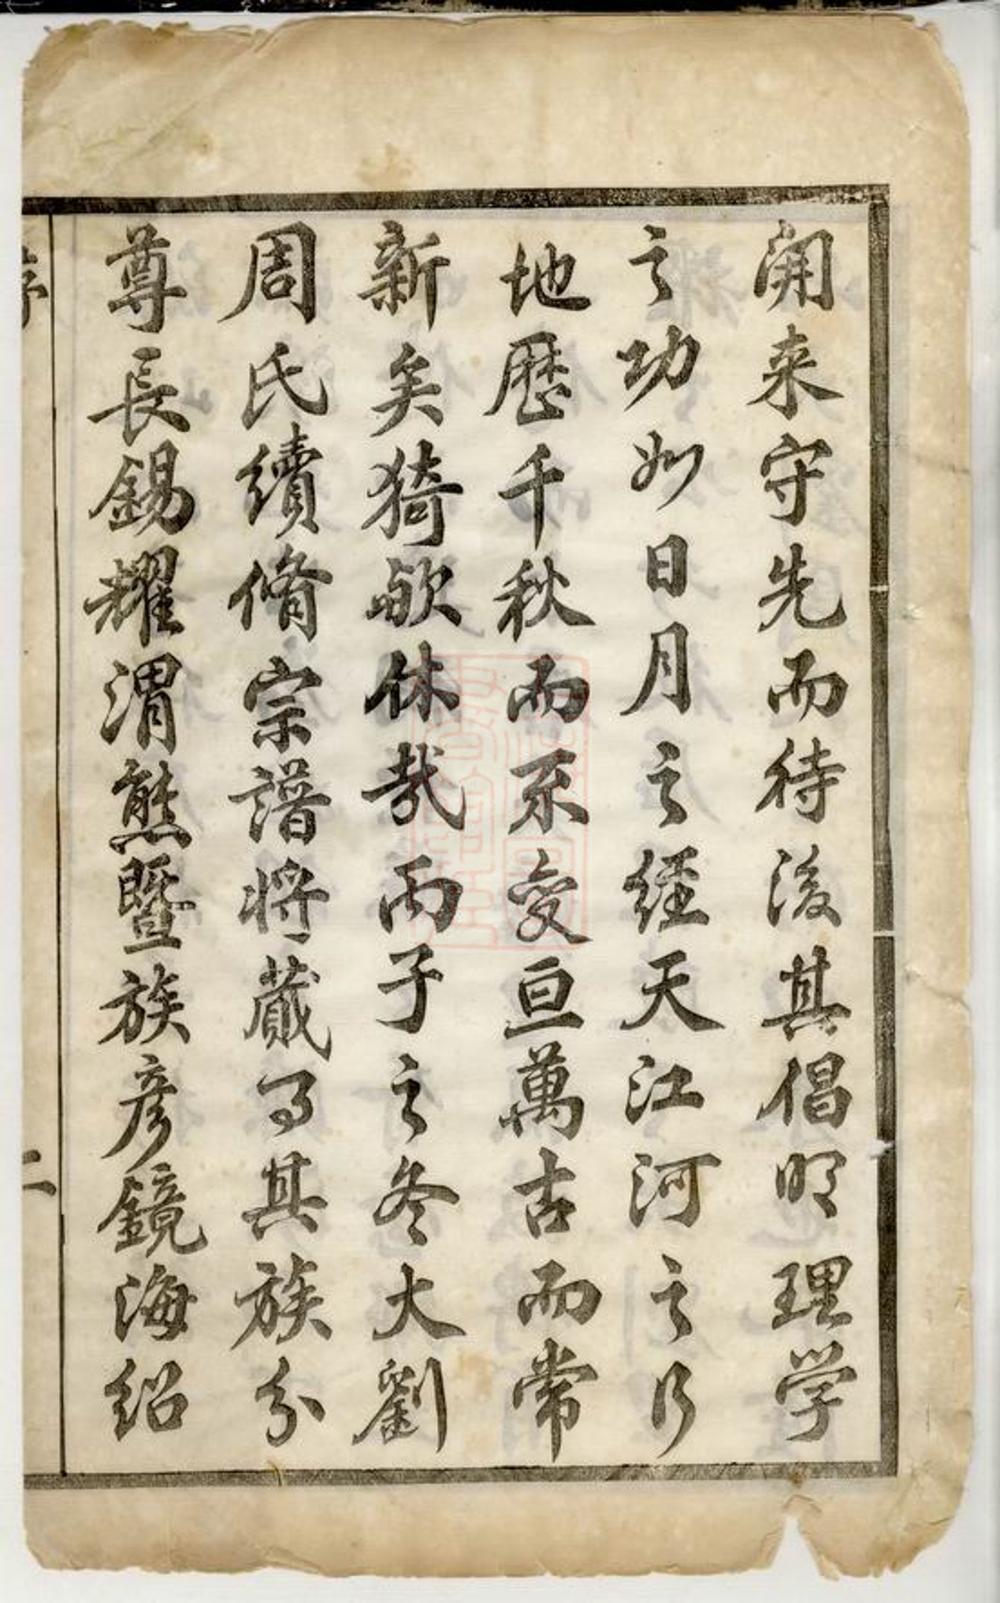 開来守先而待後其倡明理学
之功如日月之經天江河之行
地歷千秋而不變亘萬古而常
新矣猗歟休哉丙子之冬大劉
周氏續脩宗譜將蕆事其族分
尊長錫耀渭熊暨族彦鏡海紹
序
二